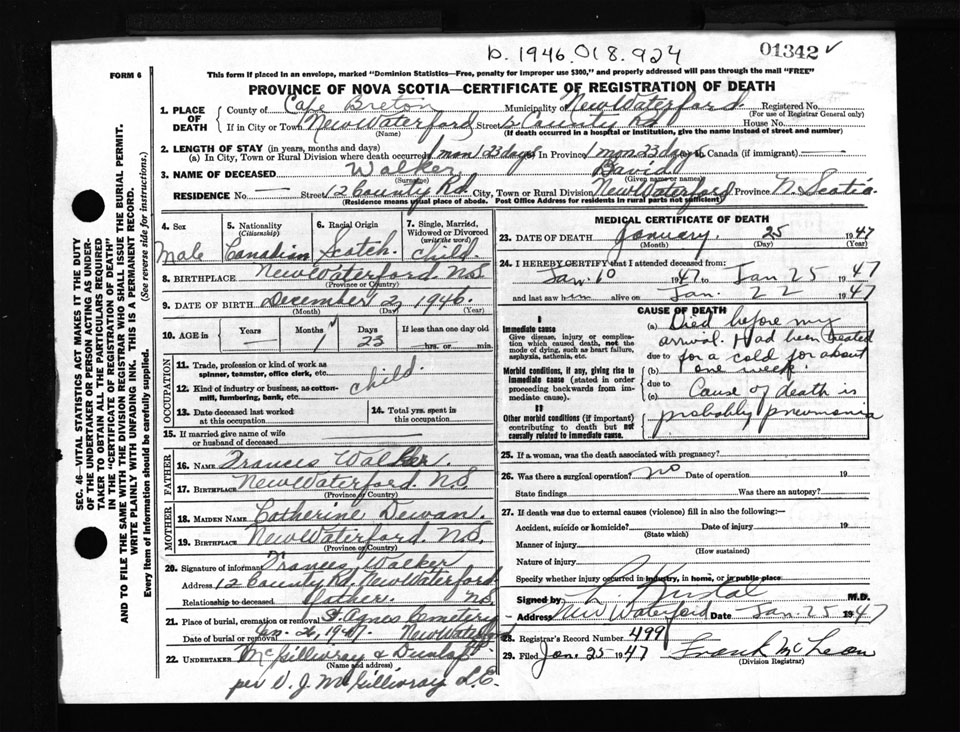 D. 1946.018.924
01342 ✓
FORM 6
This form if placed in an envelope, marked "Dominion Statistics—Free, penalty for improper use $300," and properly addressed will pass through the mail "FREE"
PROVINCE OF NOVA SCOTIA—CERTIFICATE OF REGISTRATION OF DEATH
SEC. 46—VITAL STATISTICS ACT MAKES IT THE DUTY
OF THE UNDERTAKER OR PERSON ACTING AS UNDER-
TAKER TO OBTAIN ALL THE PARTICULARS REQUIRED
IN THE "CERTIFICATE OF REGISTRATION OF DEATH"
AND TO FILE THE SAME WITH THE DIVISION REGISTRAR WHO SHALL ISSUE THE BURIAL PERMIT.
WRITE PLAINLY WITH UNFADING INK. THIS IS A PERMANENT RECORD.
Every item of Information should be carefully supplied. (See reverse side for instructions.)
1. PLACE OF DEATH
County of Cape Breton Municipality of New Waterford Registered No.
(For use of Registrar General only)
If in City or Town New Waterford Street 12 County Rd House No.
(Name) (If death occurred in a hospital or institution, give the name instead of street and number)
2. LENGTH OF STAY (in years, months and days)
(a) In City, Town or Rural Division where death occurred 1 mon 23 days In Province 1 mon 23 days In Canada (if immigrant) —
3. NAME OF DECEASED Walker David
(Surname) (Given name or names)
RESIDENCE No. — Street 12 County Rd. City, Town or Rural Division New Waterford Province N. Scotia
(Residence means usual place of abode. Post Office Address for residents in rural parts not sufficient)
4. Sex Male
5. Nationality (Citizenship) Canadian
6. Racial Origin Scotch
7. Single, Married, Widowed or Divorced (write the word) Child
8. BIRTHPLACE New Waterford N.S
(Province or Country)
9. DATE OF BIRTH December 2, 1946
(Month) (Day) (Year)
10. AGE in Years — Months 1 Days 23 If less than one day old
hrs. or min.
OCCUPATION
11. Trade, profession or kind of work as spinner, teamster, office clerk, etc.
12. Kind of industry or business, as cotton-mill, lumbering, bank, etc. child.
13. Date deceased last worked at this occupation
14. Total yrs. spent in this occupation
15. If married give name of wife or husband of deceased
FATHER
16. NAME Francis Walker.
17. BIRTHPLACE New Waterford. N.S.
(Province or Country)
MOTHER
18. MAIDEN NAME Catherine Dewan.
19. BIRTHPLACE New Waterford. N.S.
(Province or Country)
20. Signature of informant Francis Walker
Address 12 County Rd. New Waterford
Relationship to deceased Father. N.S.
21. Place of burial, cremation or removal St Agnes Cemetery
Date of burial or removal Jan. 26, 1947. New Waterford
22. UNDERTAKER McGillivray & Dunlap
(Name and address)
per D. J. McGillivray L.E.
MEDICAL CERTIFICATE OF DEATH
23. DATE OF DEATH January 25 1947
(Month) (Day) (Year)
24. I HEREBY CERTIFY that I attended deceased from:
Jan. 10 1947 to Jan 25 1947
and last saw him alive on Jan. 22 1947
CAUSE OF DEATH
I
Immediate cause
Give disease, injury or complication which caused death, not the mode of dying, such as heart failure, asphyxia, asthenia, etc.
Morbid conditions, if any, giving rise to immediate cause (stated in order proceeding backwards from immediate cause).
II
Other morbid conditions (if important) contributing to death but not causally related to immediate cause.
(a) Died before my
arrival. Had been treated
due to for a cold for about
(b) one week.
due to
(c) Cause of death is
probably pneumonia
25. If a woman, was the death associated with pregnancy?
26. Was there a surgical operation? no Date of operation 19
State findings Was there an autopsy?
27. If death was due to external causes (violence) fill in also the following:—
Accident, suicide or homicide? Date of injury 19
(State which)
Manner of injury
(How sustained)
Nature of injury
Specify whether injury occurred in industry, in home, or in public place
Signed by M.D.
Address New Waterford Date Jan. 25 1947
28. Registrar's Record Number 499
29. Filed Jan. 25 1947 Frank McLean
(Division Registrar)